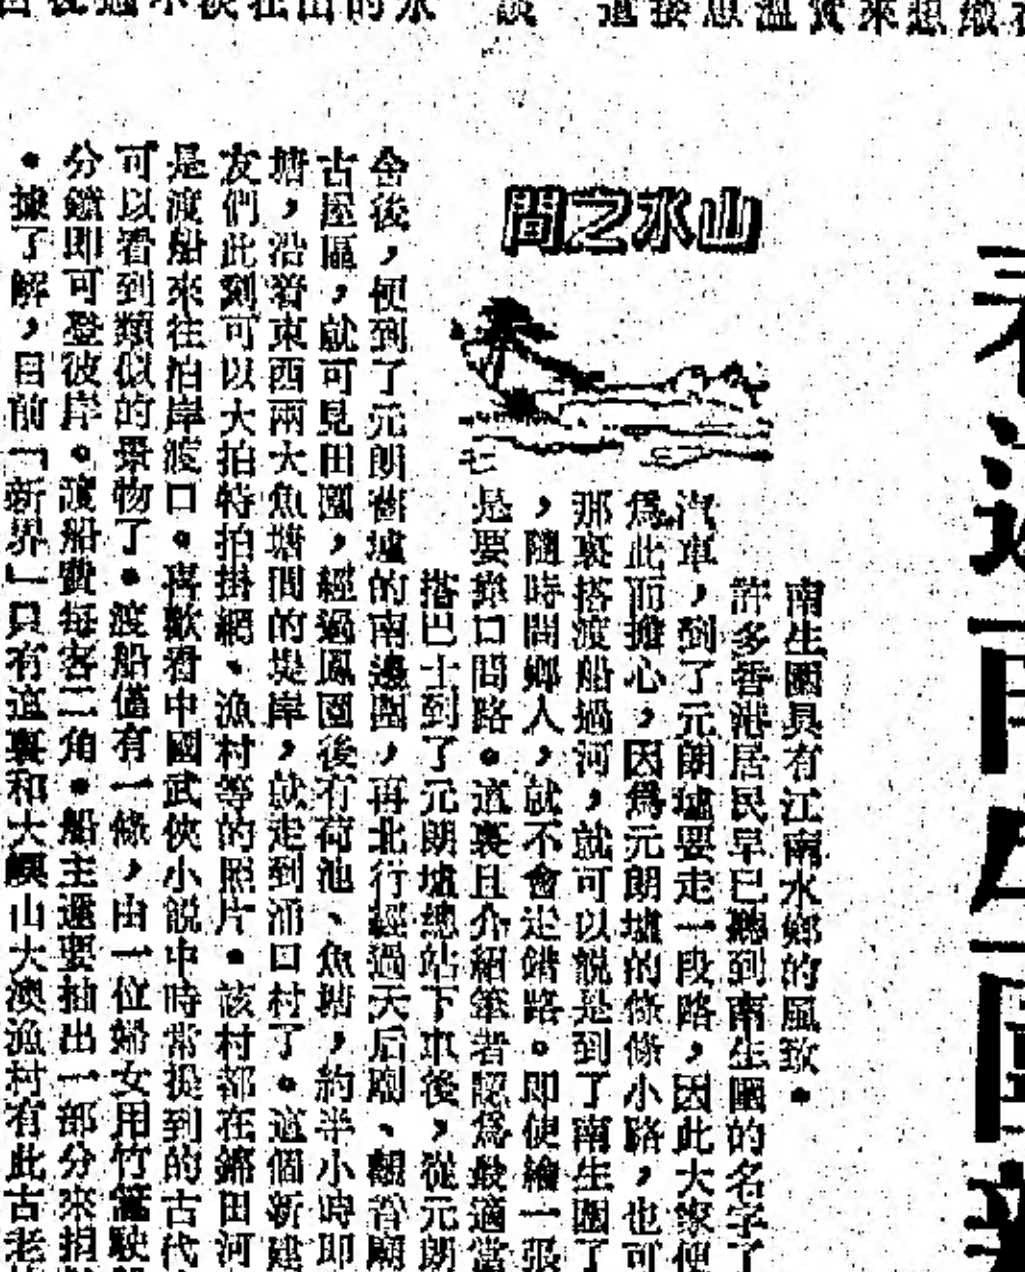 山水之間
南生圍具有江南水鄉的風致。
許多香港居民早已聽到南生圍的名字了
汽車，到了元朗墟要走一段路，因此大家便
爲此而擔心，因爲元朗墟的條條小路，也可
那裏搭渡船過河，就可以說是到了南生圍了
，隨時問鄉人，就不會走錯路。即使繪一張
是要靠口問路。這裏且介紹筆者認爲最適當
搭巴士到了元朗墟總站下車後，從元朗
舍後，便到了元朗舊墟的南邊圍，再北行經過天后廟、觀音廟
古屋區，就可見田園，經過鳳園後有荷池、魚塘，約半小時即
塘，沿着東西兩大魚塘間的堤岸，就走到涌口村了。這個新建
友們此刻可以大拍特拍掛網、漁村等的照片。該村都在錦田河
是渡船來往泊岸渡口。喜歡看中國武俠小說中時常提到的古代
可以看到類似的景物了。渡船僅有一條，由一位婦女用竹篙駛
分鐘即可登彼岸。渡船費每客二角。船主還要抽出一部分來捐
。據了解，目前「新界」只有這裏和大嶼山大澳漁村有此古老